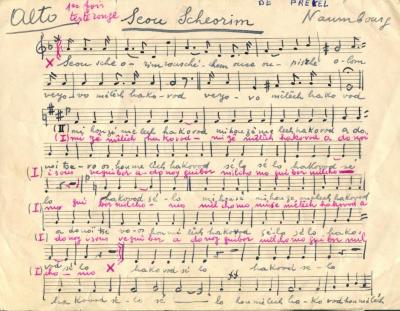 alto 1re fois texte rouge Scou Scheorim DE PREVEL Naumbourg
× Scou sché o- rim rouschē-chem ouca ou- pischē o-lom
veyo-vo mélech hako-vod veyo- vo mélech hako vod
(II) mi hou zé mé lech hakovod mi hou zé mé lech hakovod a do
(I) mi zé mélech hakovod- mi zé mélech hakovod a donoi
noï tse-vo os hou mé lech hakovod sé lo sé lo hakovod sé
(I) isous veguibor a-donoy guibor milchomo mi zé mélech hakovod
lo hakovod sé-lo mi hou zé mi hou zé mélech hakovod
(I) guibor milcho- mo milchomo mi zé mélech hakovod a
a donoï tse vo-os hou mé lech hakovod sélo sé lo hako-
(I) donoy isous veguibor a donoy guibor milchomo gui bor mil
vod sé lo hakovod sé lo hakovod sé-lo
(I) cho-mo ×
hakovod sé lo sé lo hou mélech ha-ko vod hou mélech